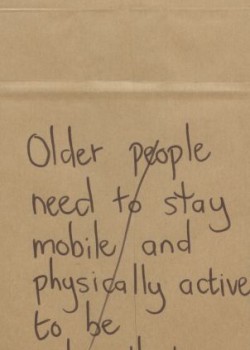 Older people
need to stay
mobile and
physically active
to be